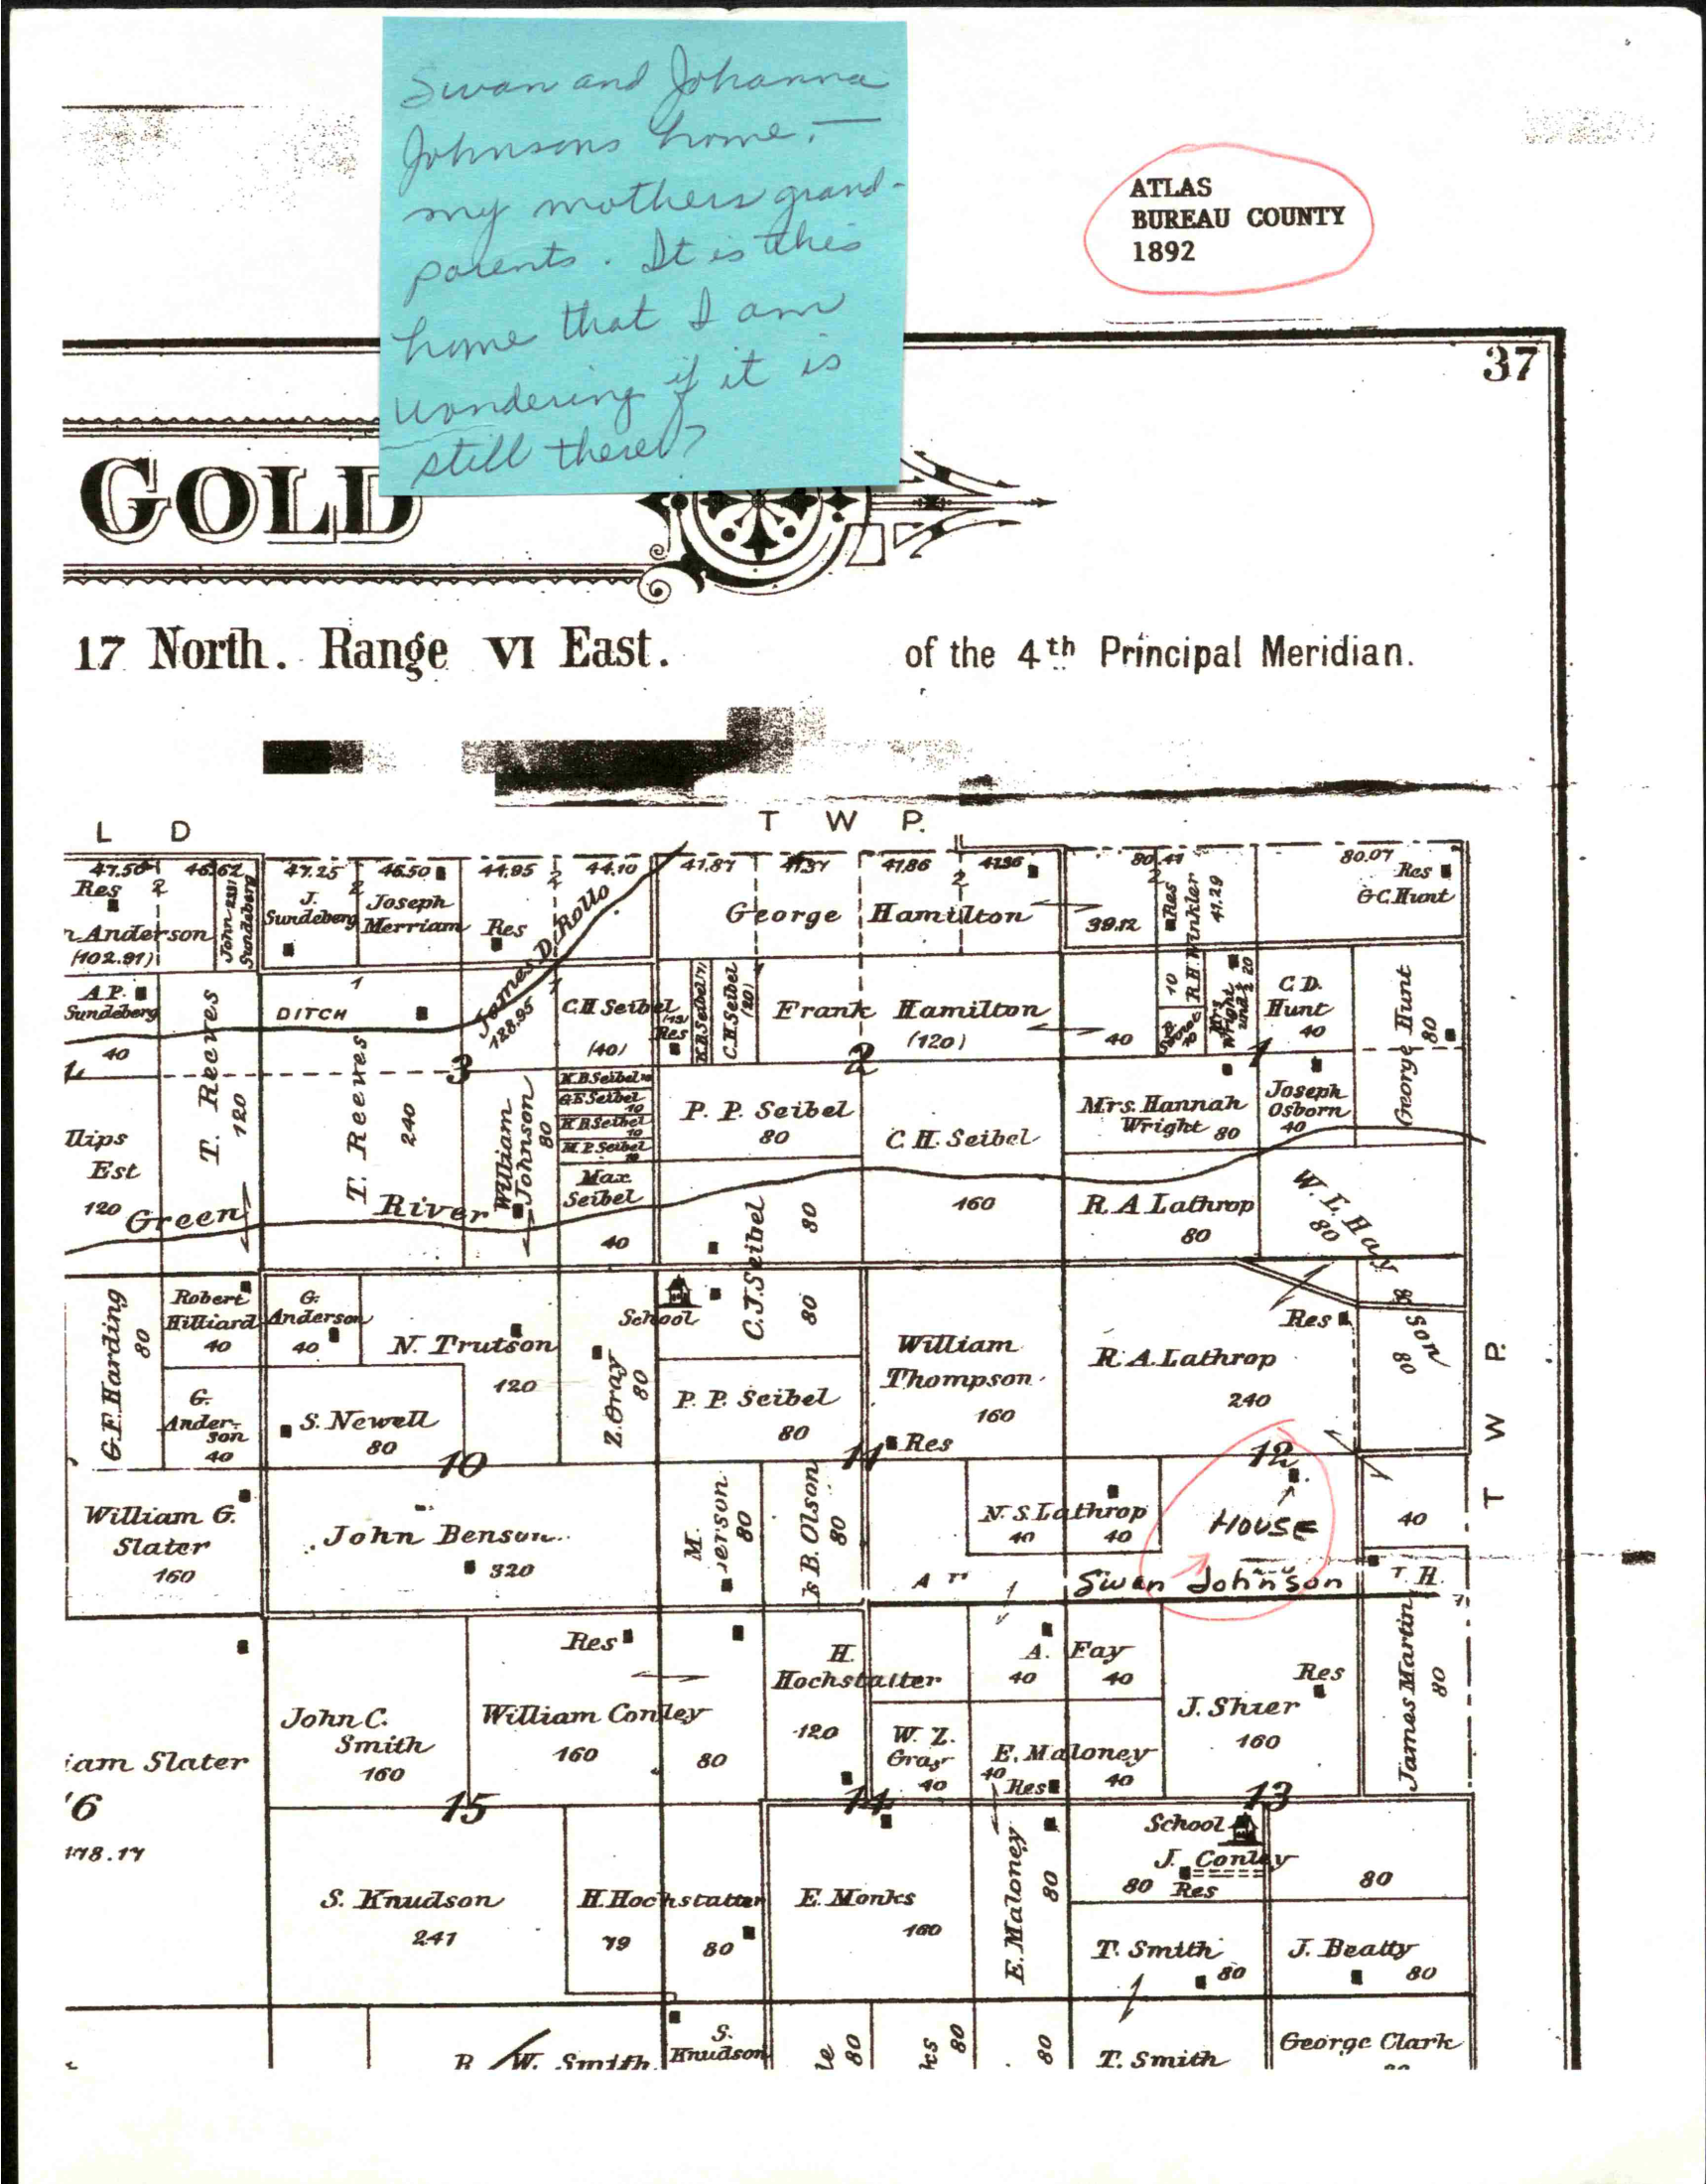 Swan and Johanna
Johnsons home. —
my mothers grand-
parents. It is this
home that I am
wondering if it is
still there?
ATLAS
BUREAU COUNTY
1892
37
GOLD
17 North. Range VI East.
of the 4th Principal Meridian.
L D
T W P.
47.50 46.62 47.25 46.50 44.95 44.10 41.87 41.86 80.07
2 2 2 2 2
Res
n Anderson
(102.91)
John Sundeberg
J. Sundeberg
Joseph
Merriam
Res
James D. Rollo
128.95
George Hamilton
39.12
Res
R.H. Winkler
41.29
10
Res
G C. Hunt
A.P.
Sundeberg
40
T. Reeves
120
1
DITCH
T. Reeves
240
3
C.H. Seibel
(40)
Res
C.H. Seibel
(20)
Frank Hamilton
(120)
2
40
Mrs
Wright
20
1
C.D.
Hunt
40
George Hunt
80
llips
Est
120
Green River
William
Johnson
80
K.B. Seibel 10
G E Seibel
10
K B Seibel
10
M. P. Seibel
10
Max
Seibel
40
P. P. Seibel
80
C. H. Seibel
160
Mrs. Hannah
Wright 80
Joseph
Osborn
40
R. A Lathrop
80
W. L. Hay
80
G.F. Harding
80
Robert
Hilliard
40
G.
Anderson
40
N. Trutson
120
School
Z. Gray
80
C. J. Seibel
80
80
William
Thompson
160
Res
R. A. Lathrop
240
Res
son
80
G.
Ander-
son
40
S. Newell
80
10
P. P. Seibel
80
11
12
T W P.
William G.
Slater
160
John Benson
320
M.
erson
80
B. Olson
80
N. S. Lathrop
40 40
HOUSE
Swan Johnson
40
T H.
iam Slater
'6
178.17
John C.
Smith
160
Res
William Conley
160
80
H.
Hochstatter
120
W. Z.
Gray
40
A. Fay
40 40
E. Maloney
40 40
Res
J. Shier
160
Res
James Martin
80
15
14
13
S. Knudson
241
H. Hochstatter
79 80
E. Monks
160
E. Maloney
80
School
J. Conley
80 Res
80
T. Smith
80
J. Beatty
80
W. Smith
S.
Knudson
le
80
ks
80
80
T. Smith
George Clark